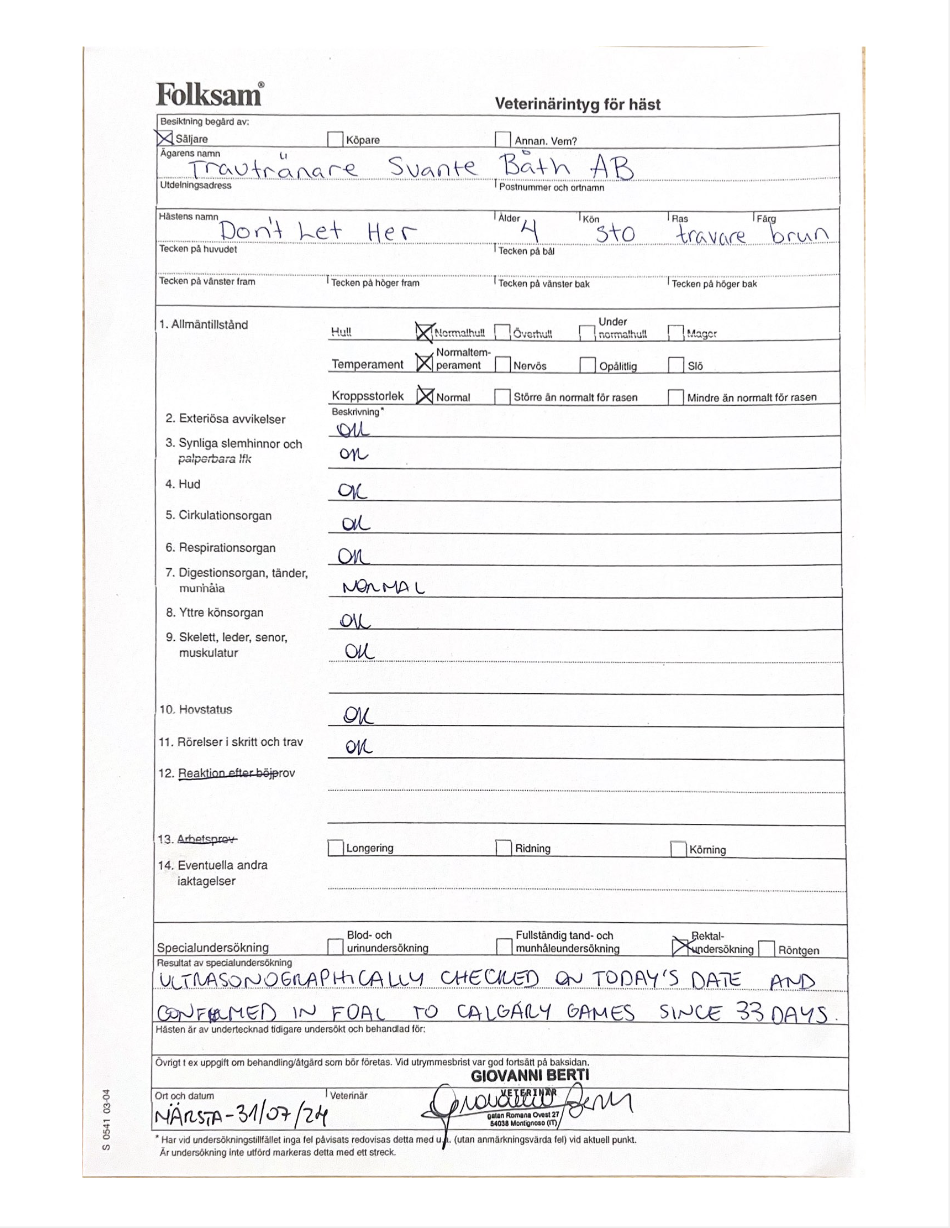 Folksam®
Veterinärintyg för häst
Besiktning begärd av:
Säljare Köpare Annan. Vem?
Ägarens namn
Travtränare Svante Båth AB
Utdelningsadress Postnummer och ortnamn
Hästens namn Ålder Kön Ras Färg
Don't Let Her 4 sto travare brun
Tecken på huvudet Tecken på bål
Tecken på vänster fram Tecken på höger fram Tecken på vänster bak Tecken på höger bak
1. Allmäntillstånd
Hull Normalhull Överhull Under normalhull Mager
Temperament Normaltemperament Nervös Opålitlig Slö
Kroppsstorlek Normal Större än normalt för rasen Mindre än normalt för rasen
Beskrivning*
2. Exteriösa avvikelser OK
3. Synliga slemhinnor och
palperbara lfk OK
4. Hud OK
5. Cirkulationsorgan OK
6. Respirationsorgan OK
7. Digestionsorgan, tänder,
munhåla NORMAL
8. Yttre könsorgan OK
9. Skelett, leder, senor,
muskulatur OK
10. Hovstatus OK
11. Rörelser i skritt och trav OK
12. Reaktion efter böjprov
13. Arbetsprov Longering Ridning Körning
14. Eventuella andra
iaktagelser
Specialundersökning Blod- och urinundersökning Fullständig tand- och munhåleundersökning Rektal-undersökning Röntgen
Resultat av specialundersökning
ULTRASONOGRAPHICALLY CHECKED ON TODAY'S DATE AND
CONFIRMED IN FOAL TO CALGARY GAMES SINCE 33 DAYS.
Hästen är av undertecknad tidigare undersökt och behandlad för:
Övrigt t ex uppgift om behandling/åtgärd som bör företas. Vid utrymmesbrist var god fortsätt på baksidan.
GIOVANNI BERTI
Ort och datum Veterinär
VETERINÄR
NÄRSTA-31/07/24
gatan Romana Ovest 27
54038 Montignoso (IT)
* Har vid undersökningstillfället inga fel påvisats redovisas detta med u.a. (utan anmärkningsvärda fel) vid aktuell punkt.
Är undersökning inte utförd markeras detta med ett streck.
S 0541 03-04